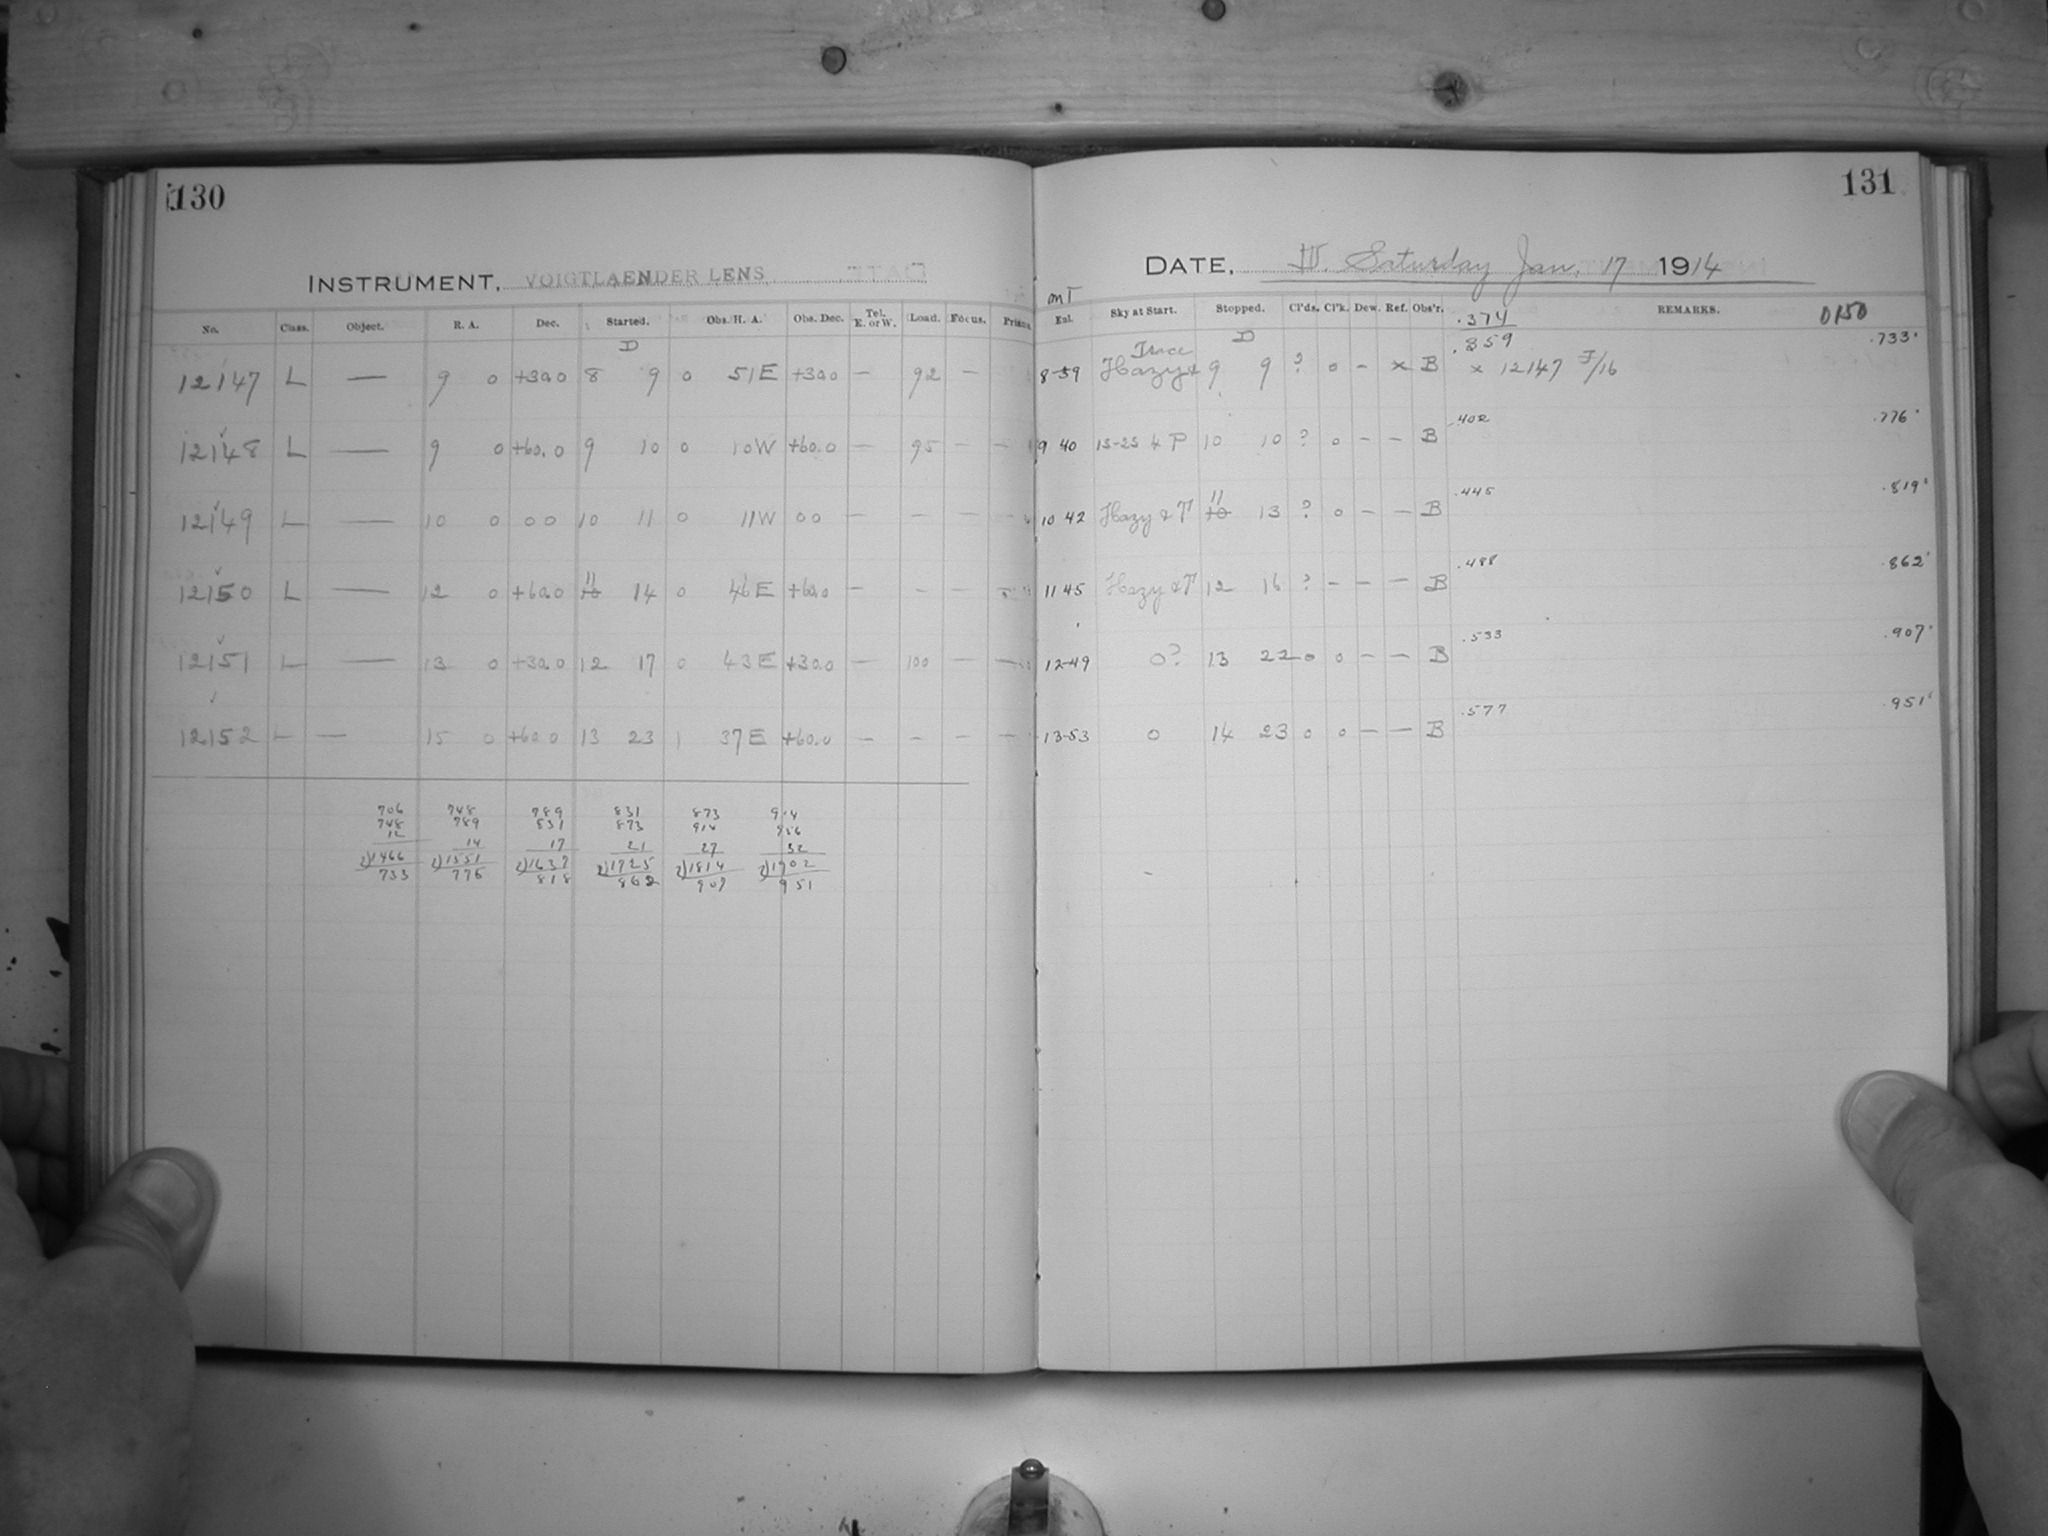 130
INSTRUMENT, VOIGTLAENDER LENS
No. Class. Object. R. A. Dec. Started. Obs. H. A. Obs. Dec. Tel. E. or W. Load. Focus. Prisms
D
12147 L — 9 0 +30.0 8 9 0 51 E +30.0 — 92 —
12148 L — 9 0 +60.0 9 10 0 10 W +60.0 — 95 — —
12149 L — 10 0 0 0 10 11 0 11 W 0 0 — — — —
12150 L — 12 0 +60.0 11 10 14 0 46 E +60.0 — - - —
12151 L — 13 0 +30.0 12 17 0 43 E +30.0 — 100 — —
12152 L — 15 0 +60.0 13 23 1 37 E +60.0 — — — —
706 748 789 831 873 914
748 789 831 873 914 956
12 14 17 21 27 32
2)1466 2)1551 2)1637 2)1725 2)1814 2)1902
733 775 818 862 907 951
131
DATE, IV. Saturday Jan. 17 1914
MT
Exl. Sky at Start. Stopped. Cl'ds. Cl'k. Dew. Ref. Obs'r. REMARKS.
.374
.359 .733
Trace D
8-39 Hazy & 9 9 ? 0 - x B x 12147 F/16
.402 .776
9 40 15-25 & P 10 10 ? 0 - - B
.445 .819
10 42 Hazy & T 11 10 13 ? 0 - - B
.488 .862
11 45 Hazy & T 12 16 ? - - - B
.533 .907
12-49 0? 13 22 0 0 - - B
.577 .951
13-53 0 14 23 0 0 - - B